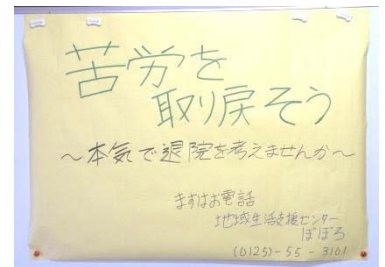 苦労を
取り戻そう
～本気で退院を考えませんか～
まずはお電話
地域生活支援センター
ぽぽろ
(0125)-55-3101